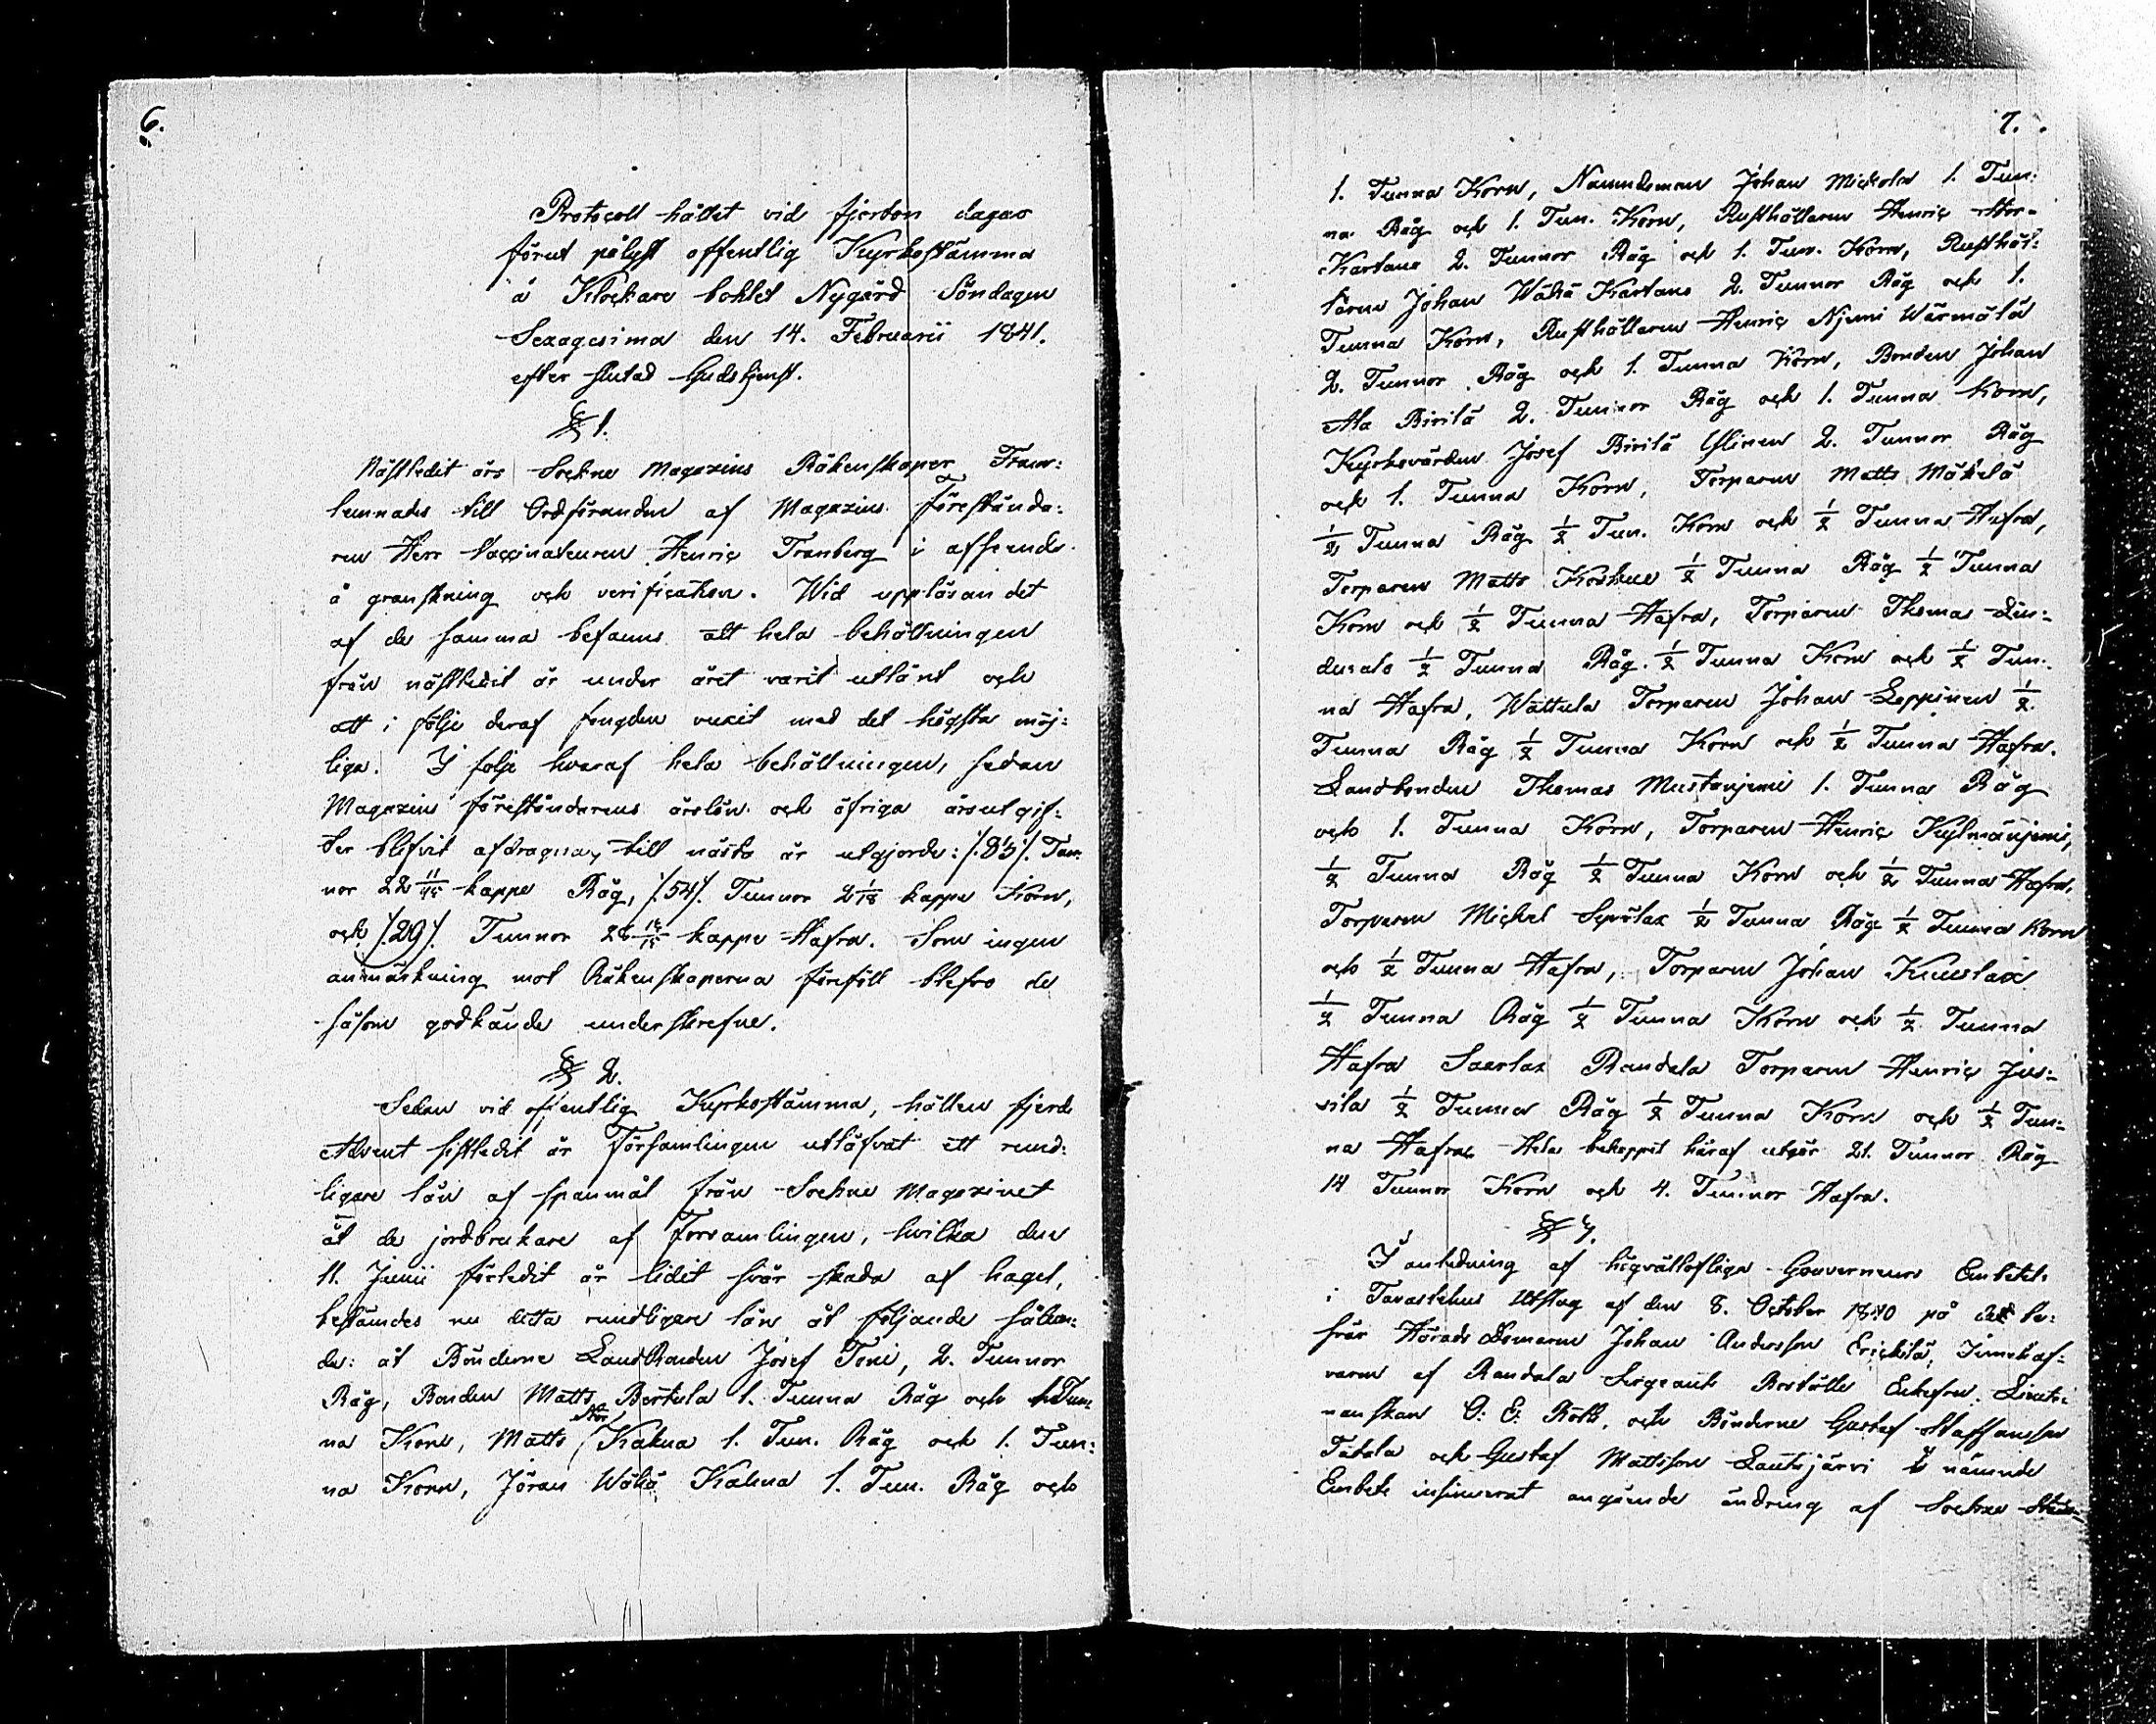 6.
Protocoll hållet vid fjorton dagar
förut pålyst offentlig Kyrkostämma
å Klockare bohlet Nygård Söndagen
Sexagesima den 14. Februarii 1841.
efter slutad Gudstjenst.
§ 1.
Nästledit års Sockne Magazins Räkenskaper Fram:
lemnades till Ordföranden af Magazins Förestånda:
ren Herr Vaccinateuren Henric Tranberg i afseende
å granskning och verification. Wid uppläsandet
af de samma befanns att hela behållningen
från nästledit år under året varit utlånt och
att i följe deraf fongden vuxit med det högsta möj:
liga. I följe hvaraf hela behållningen, sedan
Magazins föreståndarens årslön och öfriga årsutgif:
ter blifvit afdragna, till nästa år utgjorde: /. 83 /. Tun:
nor 22 11/45 kappe Råg, /. 54 /. Tunnor 2 1/18 kappe Korn,
och /. 29 /. Tunnor kappe Hafra. Som ingen
anmärkning mot Räkenskaperna föreföll blefvo de
såsom godkände underskrefne.
§ 2.
Sedan vid offentlig Kyrkostämma, hållen fjerde
Advent sistledit år Församlingen utlåfvat ett rund:
ligare lån af spanmål från Sockne Magazinet
åt de jordbrukare af Forsamlingen, hvilka den
11. Junii förledit år lidit svår skada af hagel,
bestämdes nu detta rundligare lån åt följande sålun:
da: åt Bönderne LandBonden Josef Toni, 2. Tunnor
Råg, Bonden Matts Bertula 1. Tunna Råg och 1. Tun:
na Korn, Matts Stor Kakua 1. Tun. Råg och 1. Tun:
na Korn, Jöran Wähä Kakua 1. Tun. Råg och
7.
1. Tunna Korn, Nämndeman Johan Mickola 1. Tun:
na Råg och 1. Tun. Korn, Rusthållaren Henric Stor-
Kartano 2. Tunnor Råg och 1. Tun. Korn, Rusthål:
laren Johan Wähä Kartano 2. Tunnor Råg och 1.
Tunna Korn, Rusthållaren Henric Njemi Wärmälä
2. Tunnor Råg och 1. Tunna Korn, Bonden Johan
Ala Birilä 2. Tunnor Råg och 1. Tunna Korn,
Kyrkovärden Josef Birilä Ylinen 2. Tunnor Råg
och 1. Tunna Korn, Torparen Matts Mäkelä
1/2 Tunna Råg 1/2 Tun. Korn och 1/2 Tunna Hafra,
Torparen Matts Koskue 1/2 Tunna Råg 1/2 Tunna
Korn och 1/2 Tunna Hafra, Torparen Thomas Lin:
dusalo 1/2 Tunna Råg 1/2 Tunna Korn och 1/2 Tun:
na Hafra, Wattula Torparen Johan Leppinen 1/2
Tunna Råg 1/2 Tunna Korn och 1/2 Tunna Hafra.
Landbonden Thomas Mustanjemi 1. Tunna Råg
och 1. Tunna Korn, Torparen Henric Kylmänjemi,
1/2 Tunna Råg 1/2 Tunna Korn och 1/2 Tunna Hafra,
Torparen Michel Sepälax 1/2 Tunna Råg 1/2 Tunna Korn
och 1/2 Tunna Hafra, Torparen Johan Kuuslax
1/2 Tunna Råg 1/2 Tunna Korn och 1/2 Tunna
Hafra Saarlax Randala Torparen Henric Jus:
sila 1/2 Tunna Råg 1/2 Tunna Korn och 1/2 Tun:
na Hafra. Hela beloppet häraf utgör 21. Tunnor Råg
14 Tunnor Korn och 4. Tunnor Hafra.
§
I anledning af högvällofliga Gouverneurs Embetets
i Tavastehus Utslag af den 8. October 1840 på de be:
svär Härads Domaren Johan Andersson Erickilä, Innehaf-
varen af Randala Sergeants Boställe Enkefru Lieute:
nanskan O: E: Roth, och Bönderne Gustaf Staffansson
Tätala och Gustaf Mattsson Lautijärvi nämnde
Embete insinuerat angående ändring af Sockne